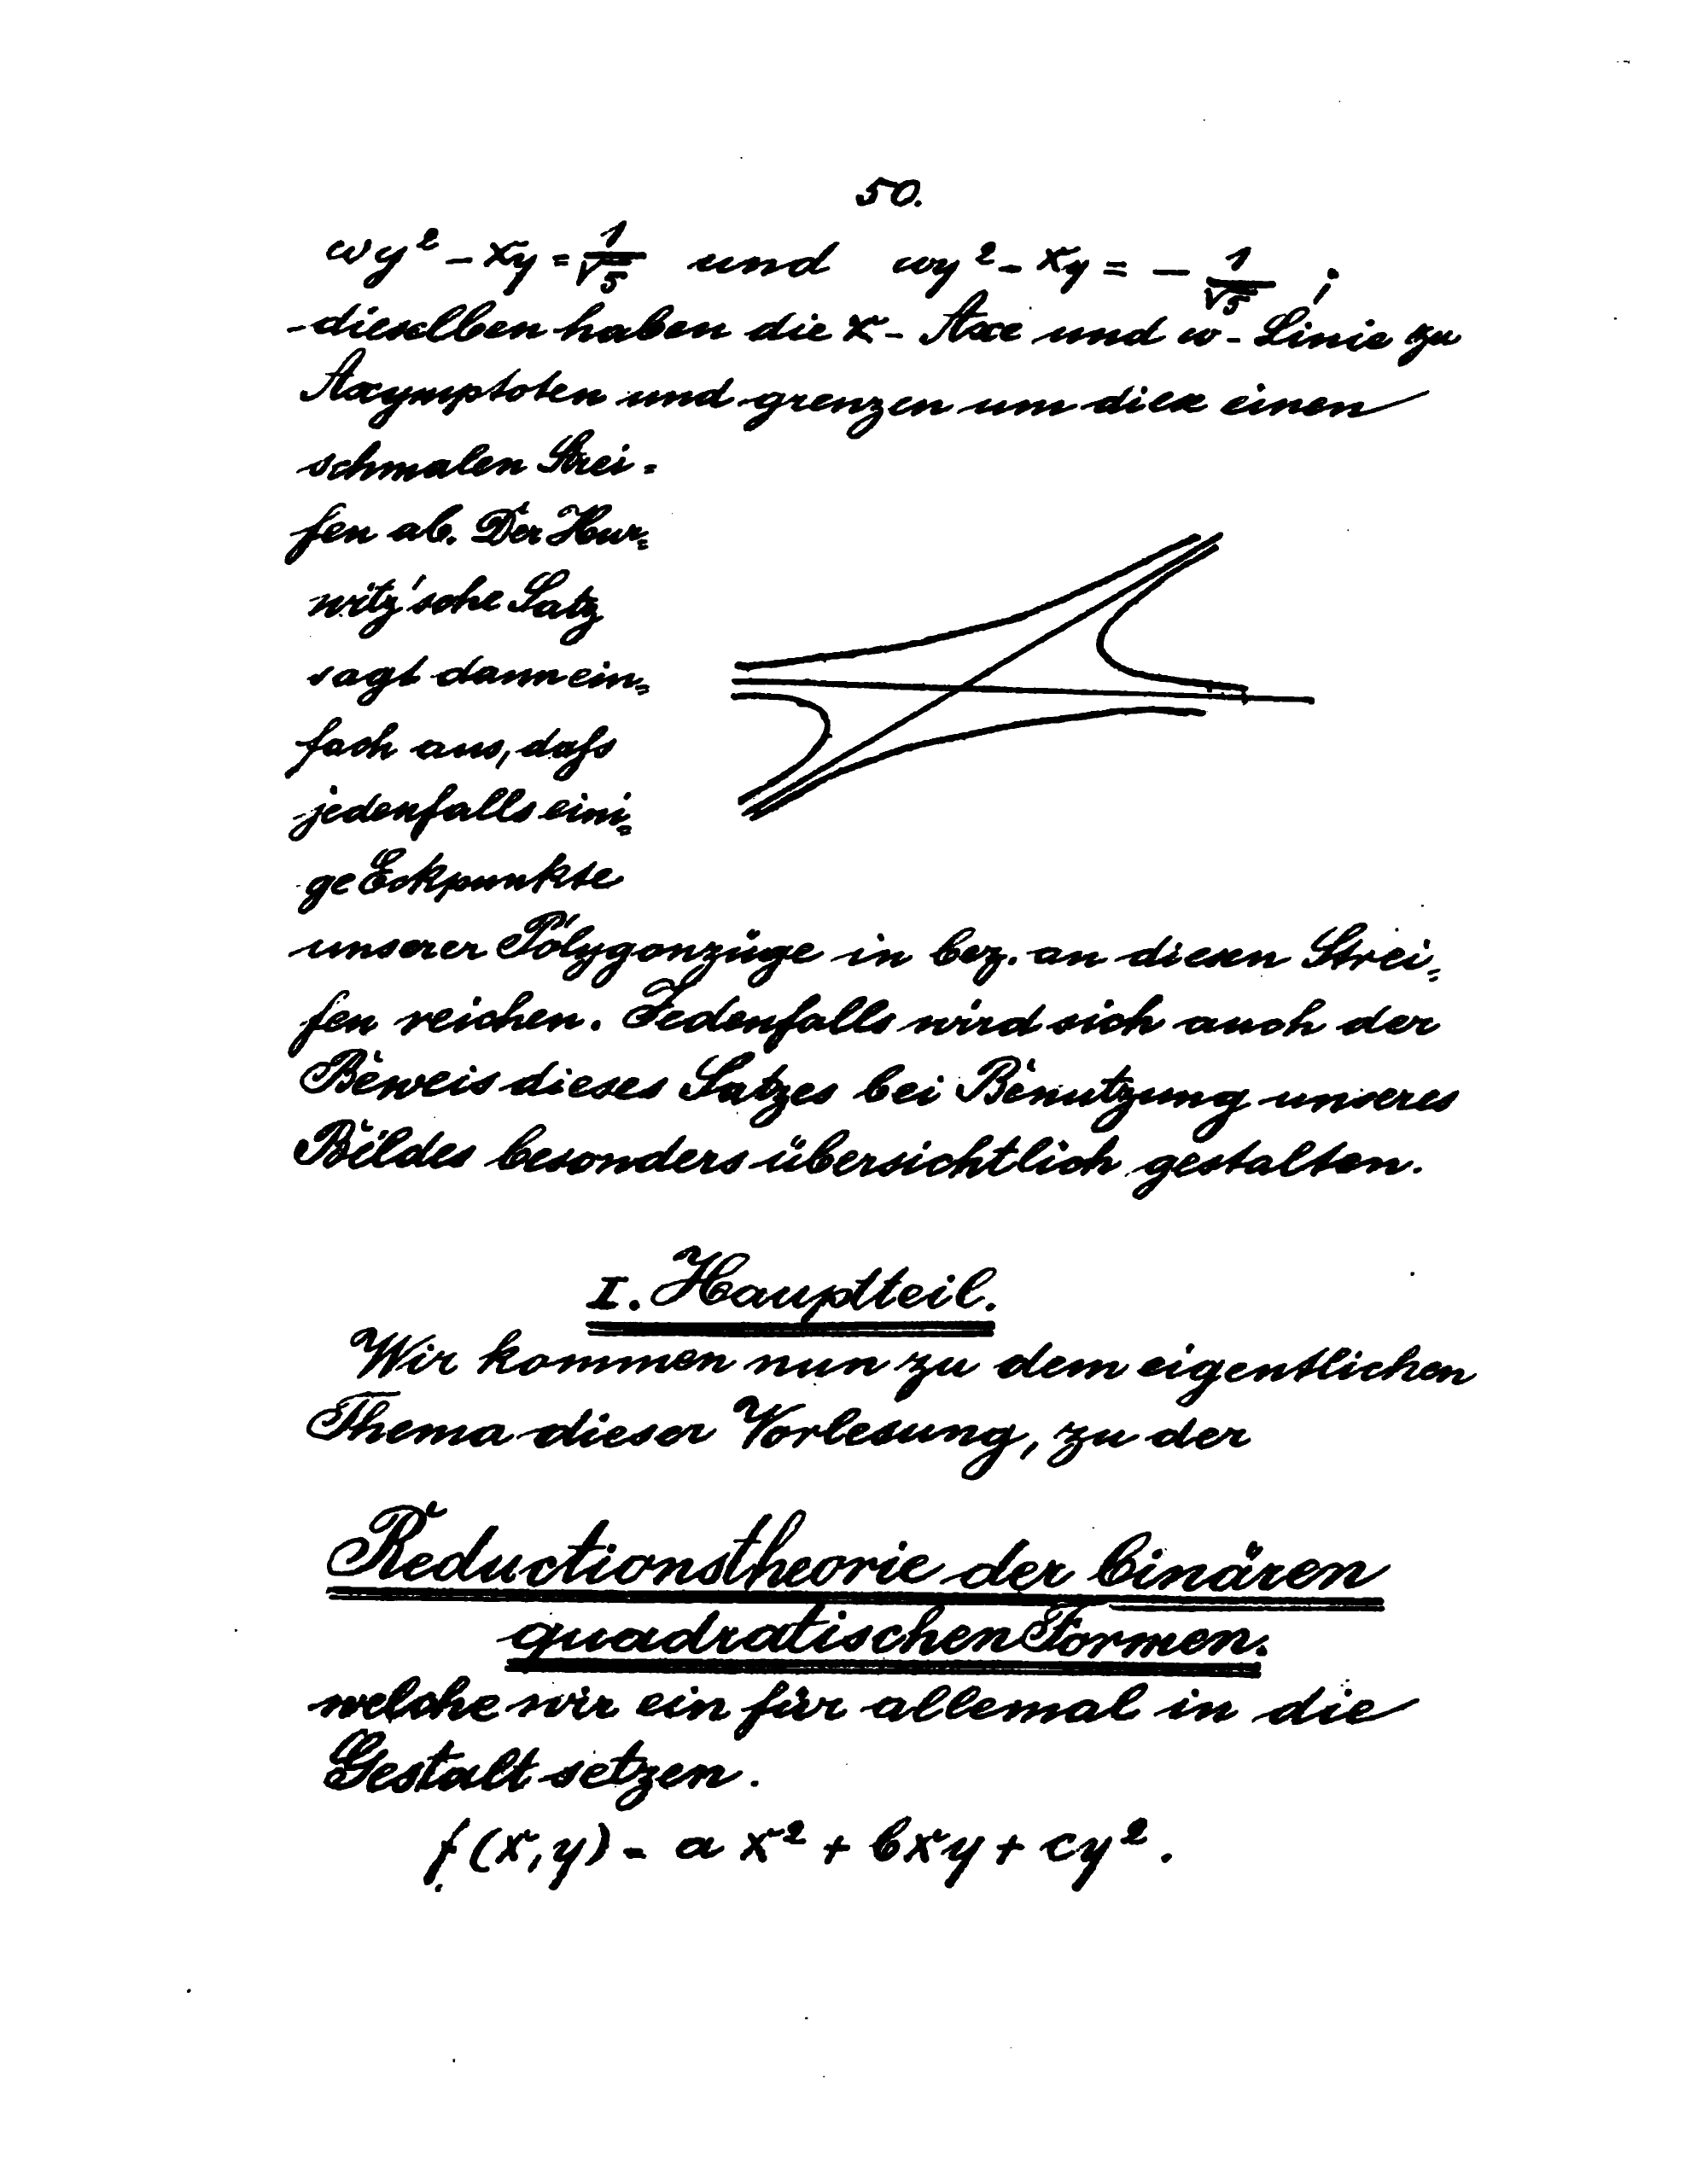 50.
ωy² - xy = 1/√5 und ωy² - xy = - 1/√5 ;
dieselben haben die x - Axe und ω - Linie zu
Asymptoten und grenzen um diese einen
schmalen Strei=
fen ab. Der Hur=
witz'sche Satz
sagt dann ein=
fach aus, daſs
jedenfalls eini=
ge Eckpunkte
unserer Polygonzüge in bez. an diesen Strei=
fen reichen. Jedenfalls wird sich auch der
Beweis dieses Satzes bei Benutzung unseres
Bildes besonders übersichtlich gestalten.
I. Hauptteil.
Wir kommen nun zu dem eigentlichen
Thema dieser Vorlesung, zu der
Reductionstheorie der binären
quadratischen Formen.
welche wir ein für allemal in die
Gestalt setzen.
f(x,y) = a x² + bxy + cy².